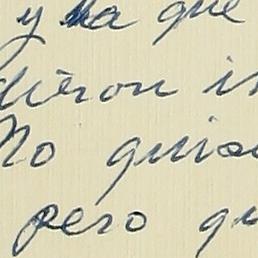 y ya que
dieron i
No quis
pero qu